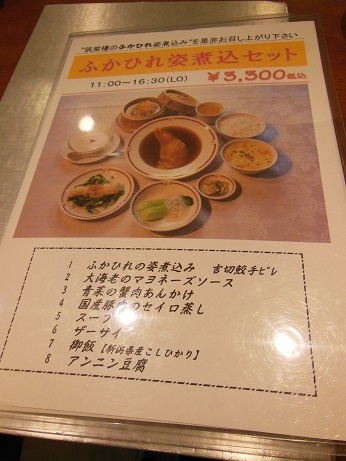 "筑紫樓のふかひれ姿煮込み"を是非お召し上がり下さい
ふかひれ姿煮込セット
11:00～16:30(LO) ￥3,300税込
1 ふかひれの姿煮込み 吉切鮫手ビレ
2 大海老のマヨネーズソース
3 青菜の蟹肉あんかけ
4 国産豚のセイロ蒸し
5 スープ
6 ザーサイ
7 御飯【新潟県産こしひかり】
8 アンニン豆腐